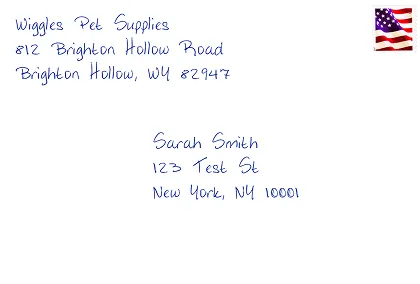 Wiggles Pet Supplies
812 Brighton Hollow Road
Brighton Hollow, WY 82947
Sarah Smith
123 Test St
New York, NY 10001